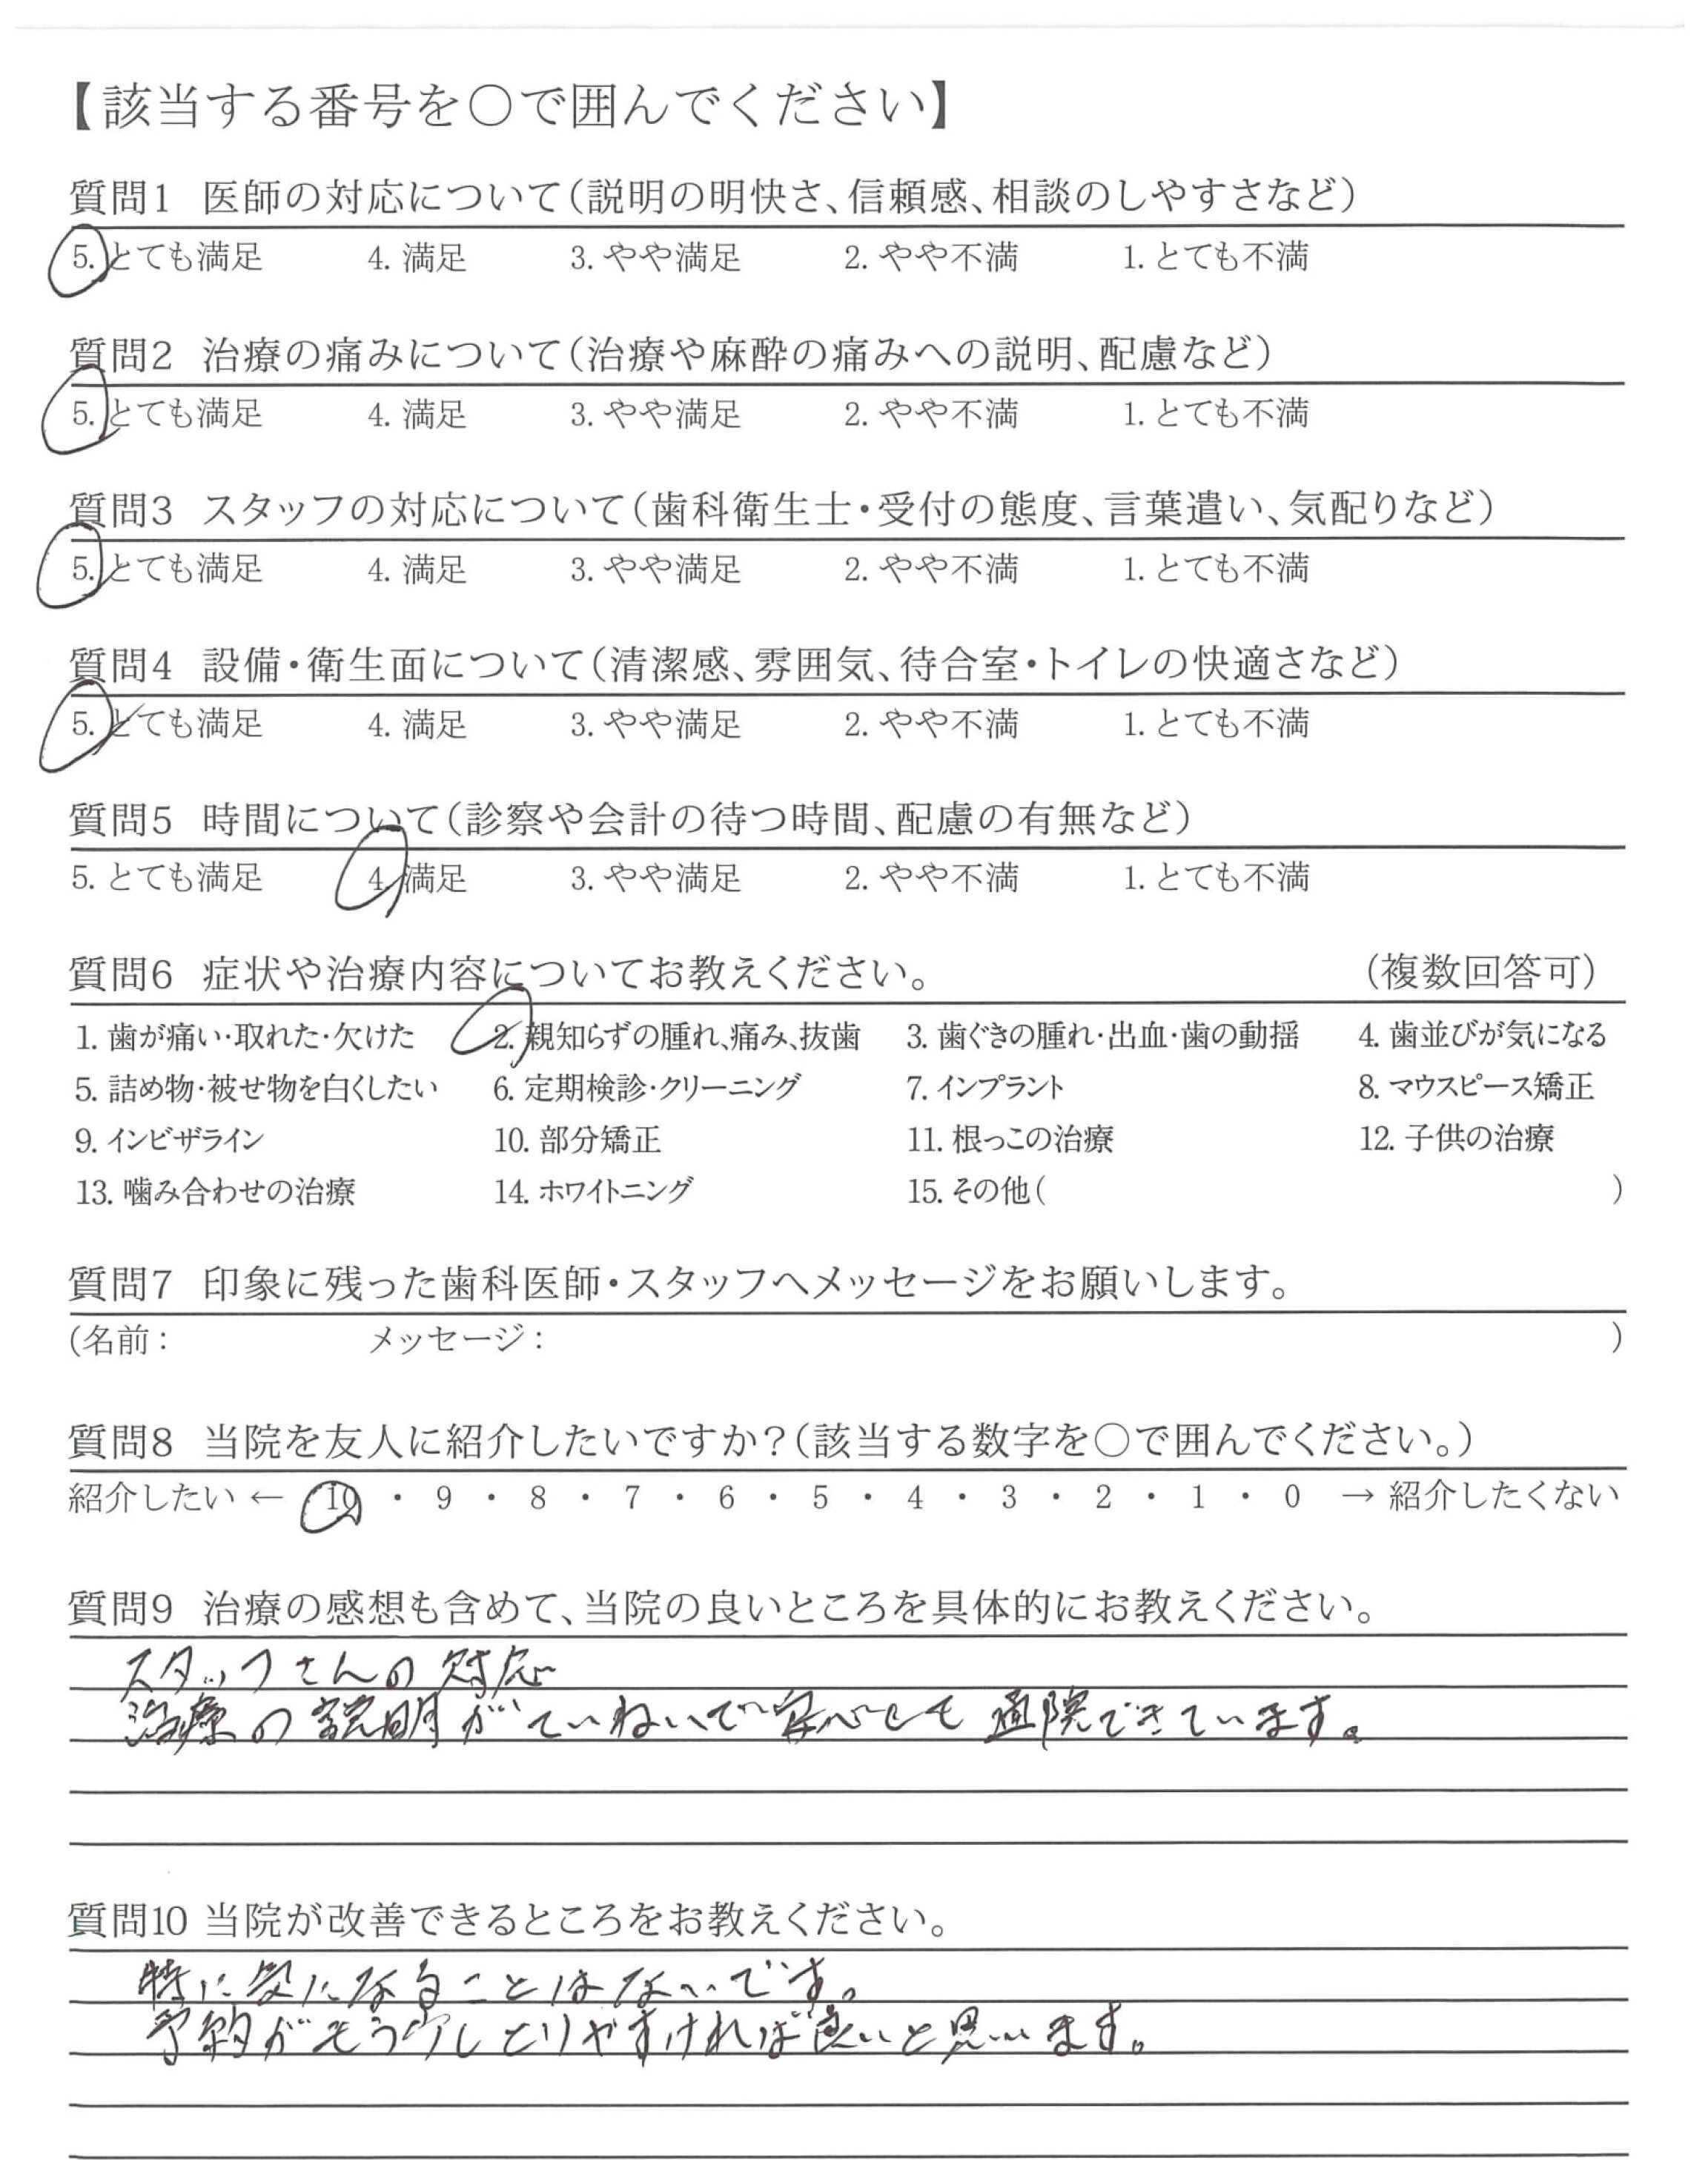 【該当する番号を○で囲んでください】
質問1 医師の対応について(説明の明快さ、信頼感、相談のしやすさなど)
5. とても満足 4. 満足 3. やや満足 2. やや不満 1. とても不満
質問2 治療の痛みについて(治療や麻酔の痛みへの説明、配慮など)
5. とても満足 4. 満足 3. やや満足 2. やや不満 1. とても不満
質問3 スタッフの対応について(歯科衛生士・受付の態度、言葉遣い、気配りなど)
5. とても満足 4. 満足 3. やや満足 2. やや不満 1. とても不満
質問4 設備・衛生面について(清潔感、雰囲気、待合室・トイレの快適さなど)
5. とても満足 4. 満足 3. やや満足 2. やや不満 1. とても不満
質問5 時間について(診察や会計の待つ時間、配慮の有無など)
5. とても満足 4. 満足 3. やや満足 2. やや不満 1. とても不満
質問6 症状や治療内容についてお教えください。 (複数回答可)
1. 歯が痛い・取れた・欠けた 2. 親知らずの腫れ、痛み、抜歯 3. 歯ぐきの腫れ・出血・歯の動揺 4. 歯並びが気になる
5. 詰め物・被せ物を白くしたい 6. 定期検診・クリーニング 7. インプラント 8. マウスピース矯正
9. インビザライン 10. 部分矯正 11. 根っこの治療 12. 子供の治療
13. 噛み合わせの治療 14. ホワイトニング 15. その他( )
質問7 印象に残った歯科医師・スタッフへメッセージをお願いします。
(名前: メッセージ: )
質問8 当院を友人に紹介したいですか?(該当する数字を○で囲んでください。)
紹介したい ← 10 ・ 9 ・ 8 ・ 7 ・ 6 ・ 5 ・ 4 ・ 3 ・ 2 ・ 1 ・ 0 → 紹介したくない
質問9 治療の感想も含めて、当院の良いところを具体的にお教えください。
スタッフさんの対応
治療の説明がていねいで安心して通院できています。
質問10 当院が改善できるところをお教えください。
特に気になることはないです。
予約がもう少しとりやすければ良いと思います。